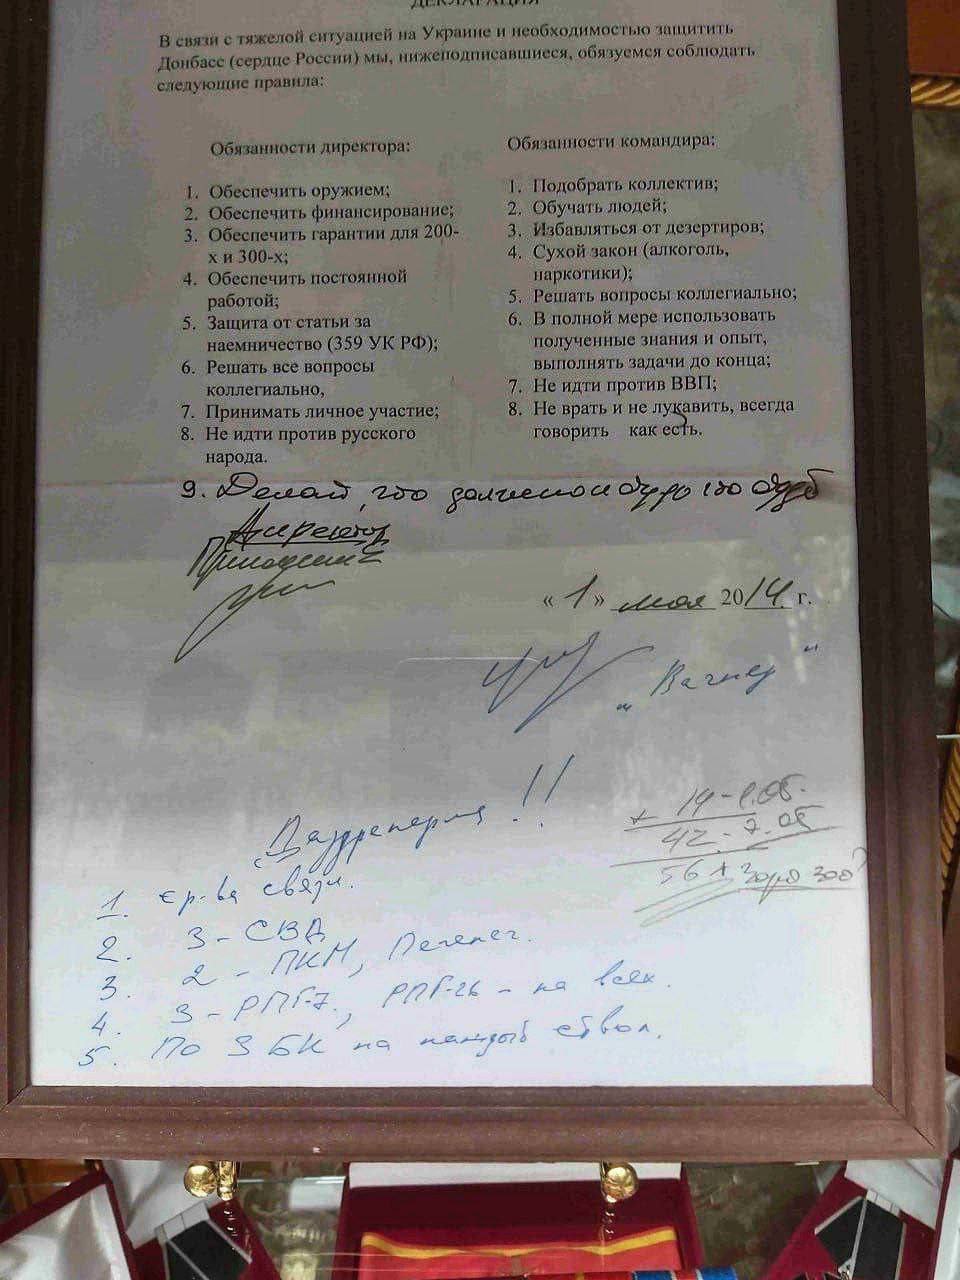 ДЕКЛАРАЦИЯ
В связи с тяжелой ситуацией на Украине и необходимостью защитить
Донбасс (сердце России) мы, нижеподписавшиеся, обязуемся соблюдать
следующие правила:
Обязанности директора:
1. Обеспечить оружием;
2. Обеспечить финансирование;
3. Обеспечить гарантии для 200-
х и 300-х;
4. Обеспечить постоянной
работой;
5. Защита от статьи за
наемничество (359 УК РФ);
6. Решать все вопросы
коллегиально,
7. Принимать личное участие;
8. Не идти против русского
народа.
Обязанности командира:
1. Подобрать коллектив;
2. Обучать людей;
3. Избавляться от дезертиров;
4. Сухой закон (алкоголь,
наркотики);
5. Решать вопросы коллегиально;
6. В полной мере использовать
полученные знания и опыт,
выполнять задачи до конца;
7. Не идти против ВВП;
8. Не врать и не лукавить, всегда
говорить как есть.
9. Делай, что должно и будь что будет
Директор
Пригожин
« 1 » мая 2014 г.
„ Вагнер "
!!
14 - 1.05.
42 - 7.05
56
1. ср-ва связи.
2. 3 - СВД
3. 2 - ПКМ, Печенег.
4. 3 - РПГ-7, РПГ-26 - на всех.
5. По 3 БК на каждый ствол.